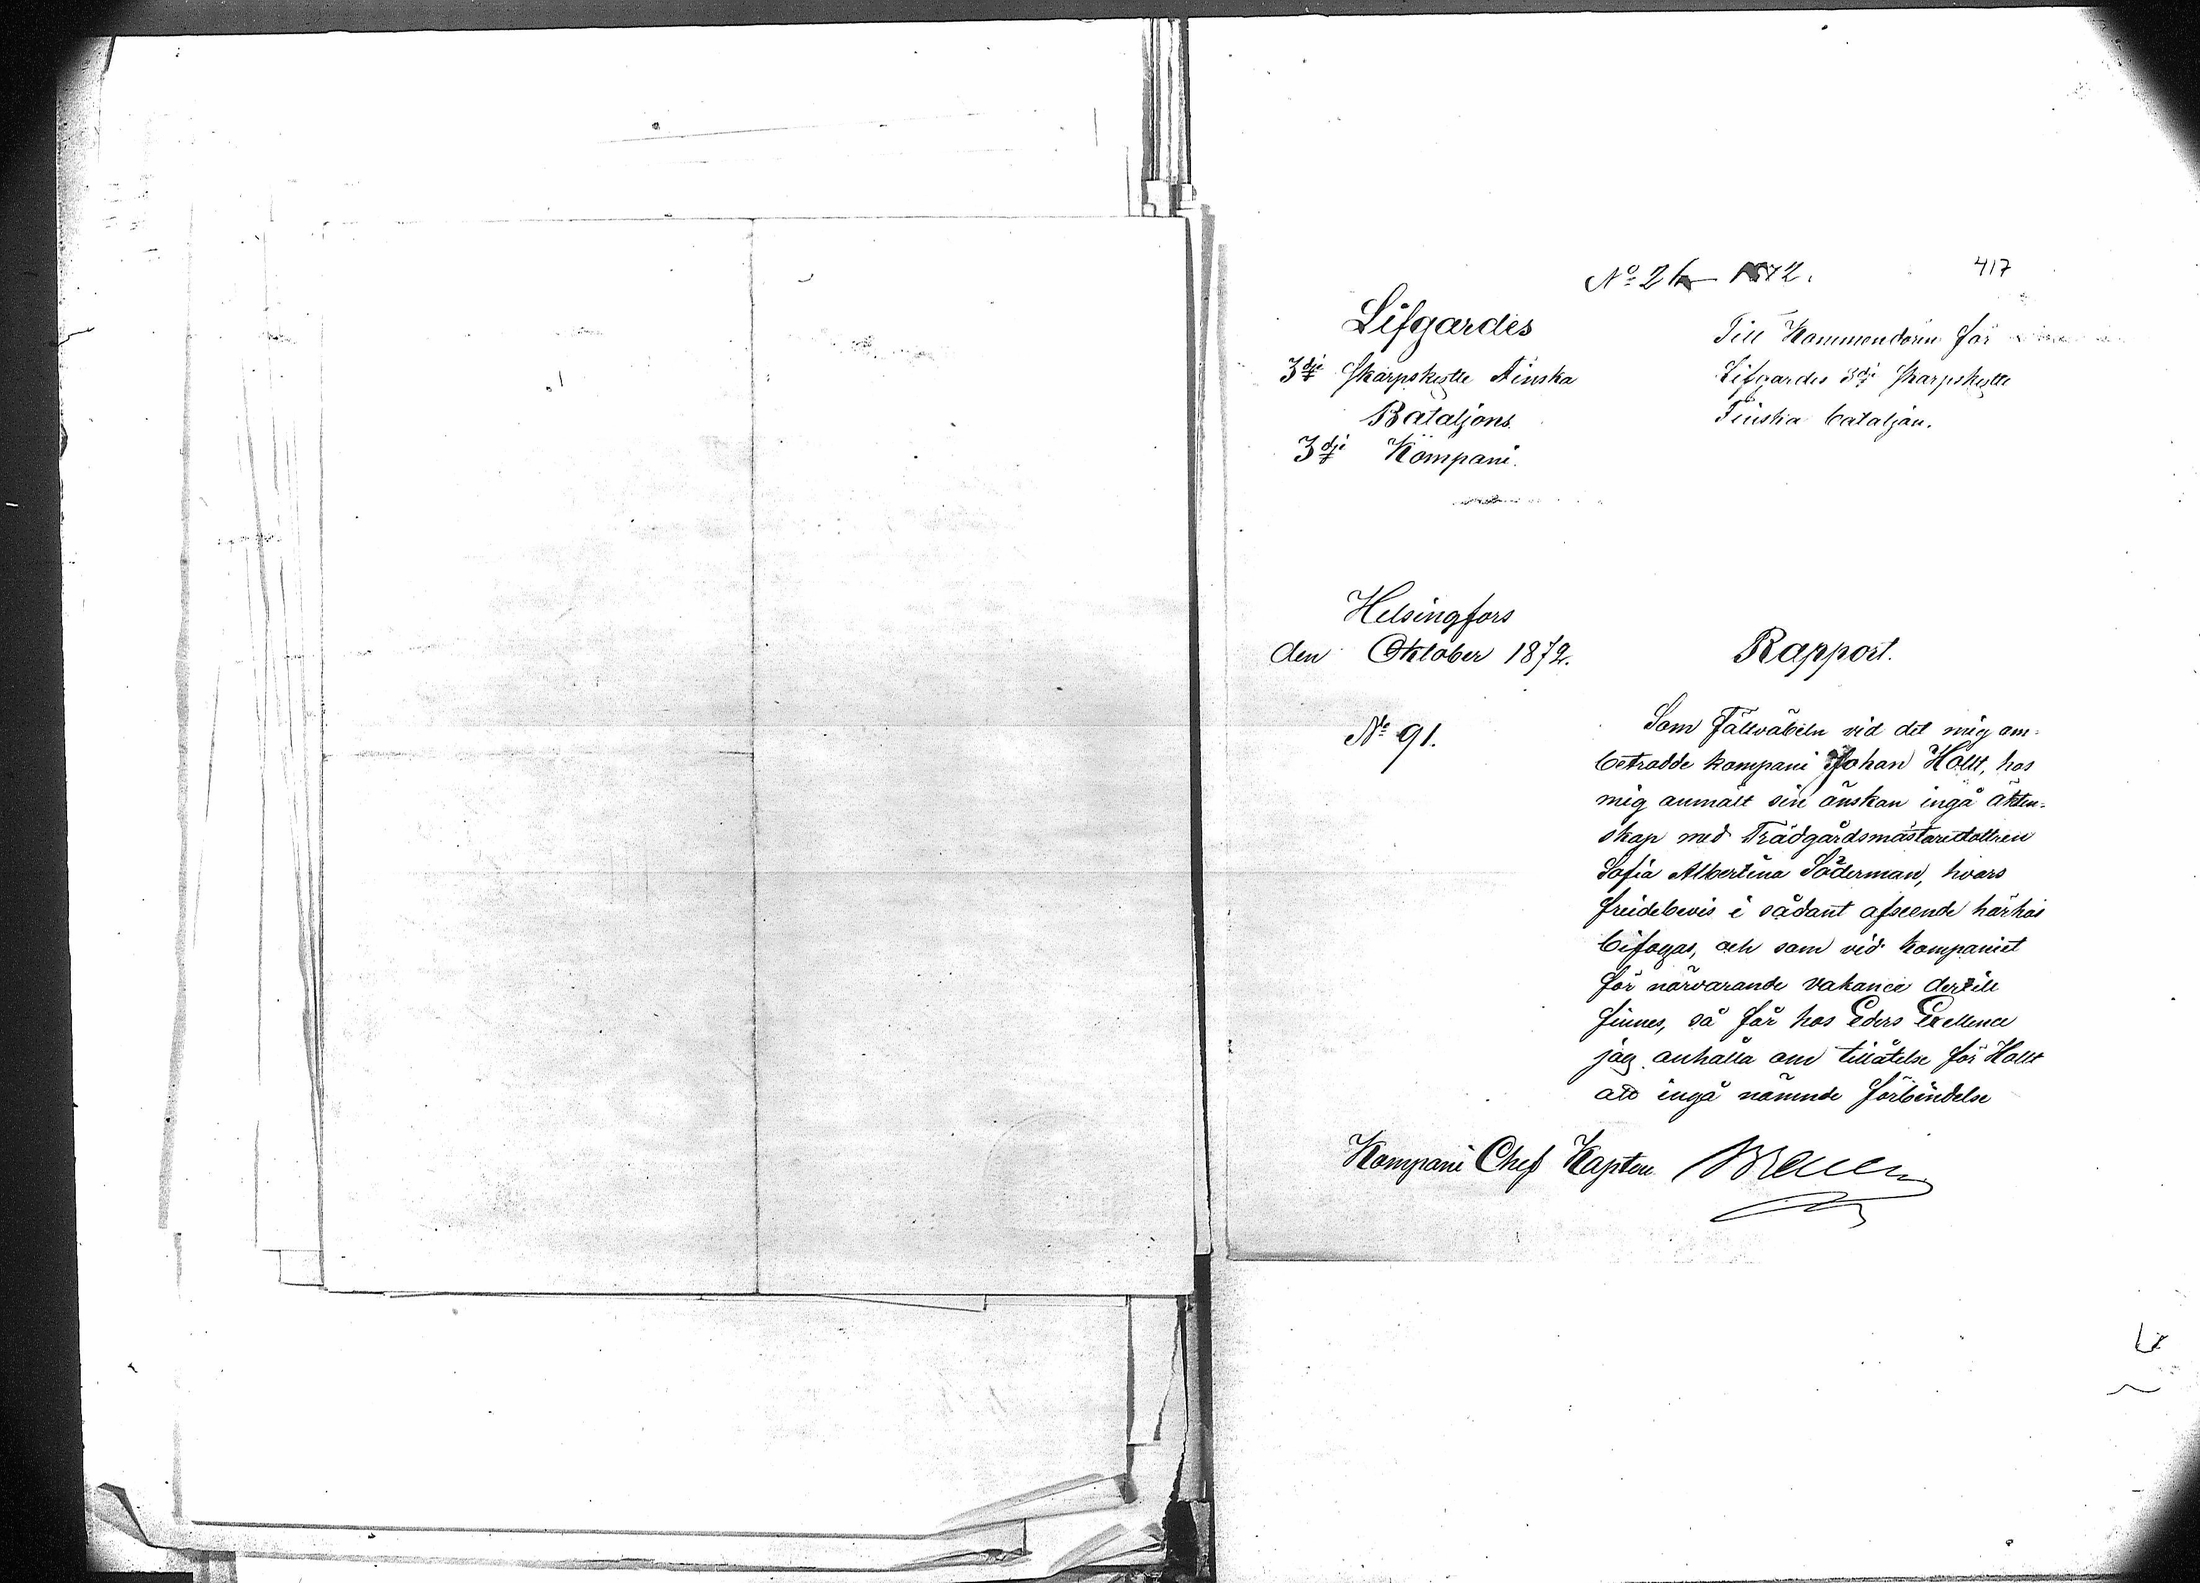 417
1872.
Lifgardes
3dje Skarpskytte Finska
Bataljons
3dje Kompani.
Till Kommendören för
Lifgardes 3dje Skarpskytte
Finska bataljon.
Helsingfors
den Oktober 1872.
No 91.
Rapport.
Som Fältväbeln vid det mig an-
betrodde kompani Johan Hollt, hos
mig anmält sin önskan ingå äkten-
skap med Trädgårdsmästaredottren
Sofia Albertina Söderman, hvars
freidebevis i sådant afseende härhos
bifogas, och som vid kompaniet
för närvarande vakance dertill
finnes, så får hos Eders Exellence
jag anhålla om tillåtelse för Hollt
att ingå nämnde förbindelse
Kompani Chef Kapten